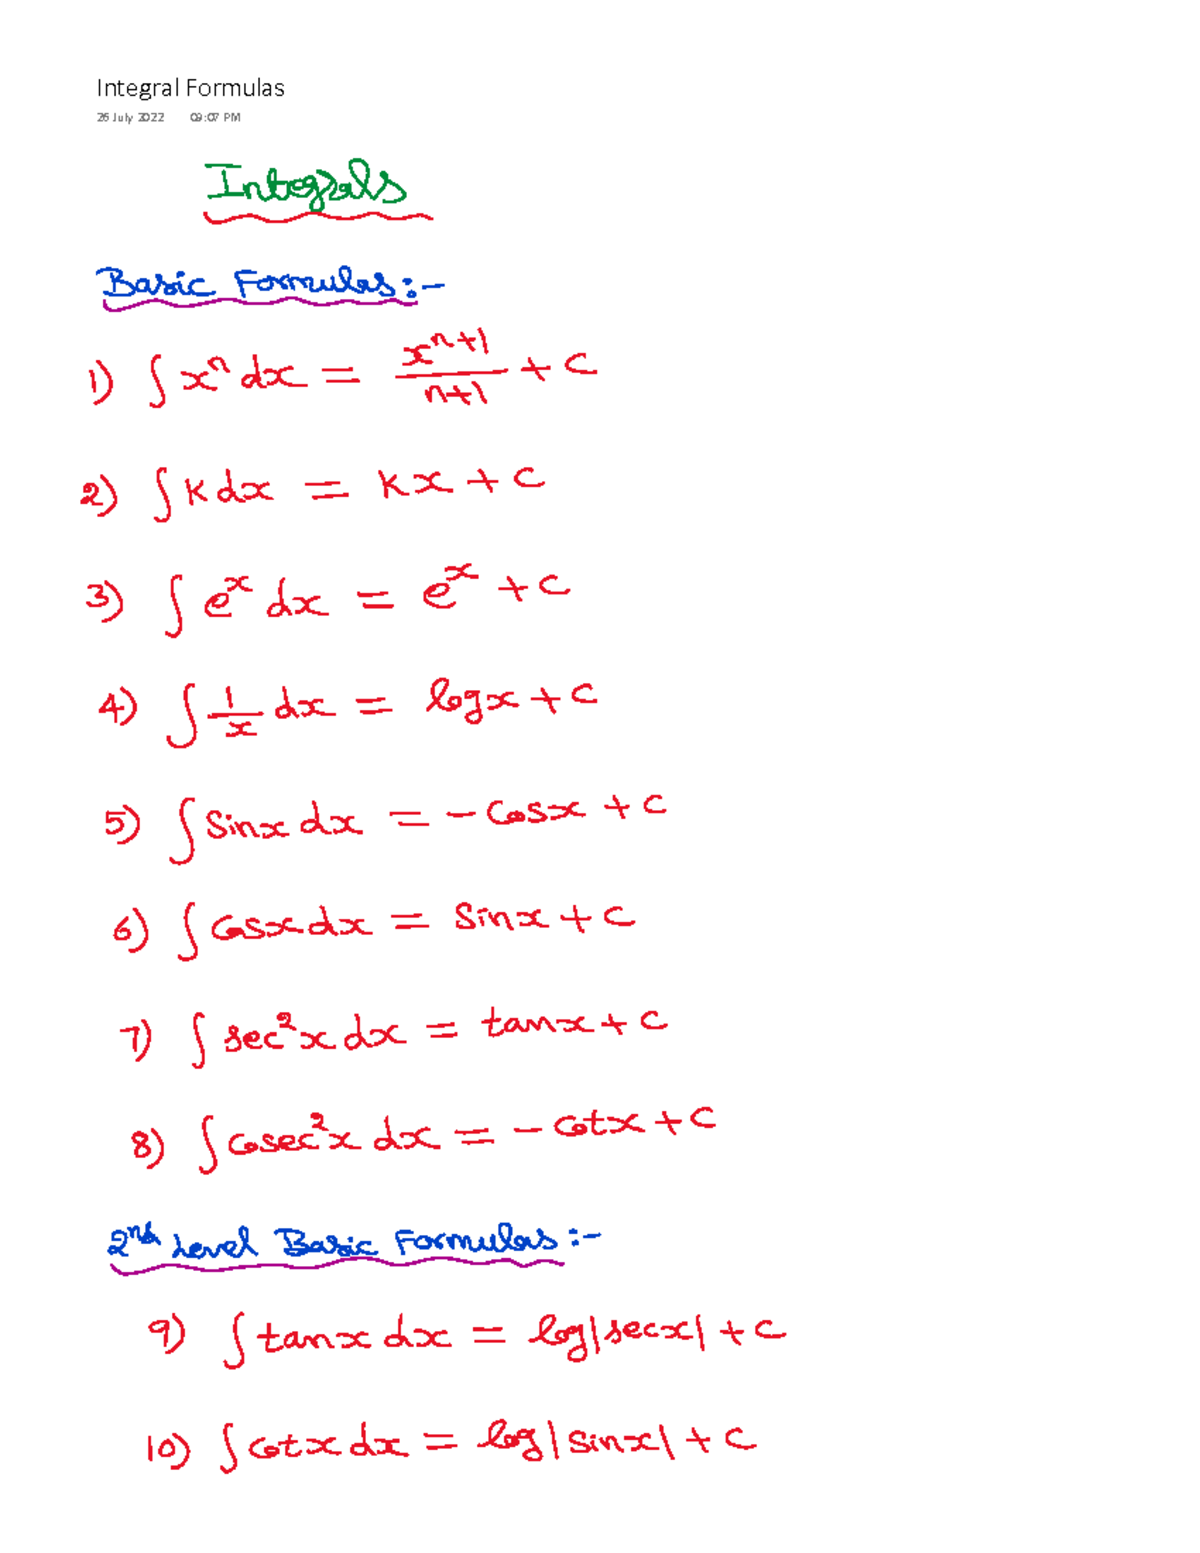 Integral Formulas
26 July 2022 09:07 PM
Integrals
Basic Formulas:-
1) ∫ xⁿ dx = xⁿ⁺¹/n+1 + c
2) ∫ K dx = Kx + c
3) ∫ eˣ dx = eˣ + c
4) ∫ 1/x dx = logx + c
5) ∫ Sinx dx = - Cosx + c
6) ∫ Cosx dx = Sinx + c
7) ∫ sec²x dx = tanx + c
8) ∫ Cosec²x dx = - Cotx + c
2nd Level Basic Formulas:-
9) ∫ tanx dx = log|secx| + c
10) ∫ Cotx dx = log|sinx| + c